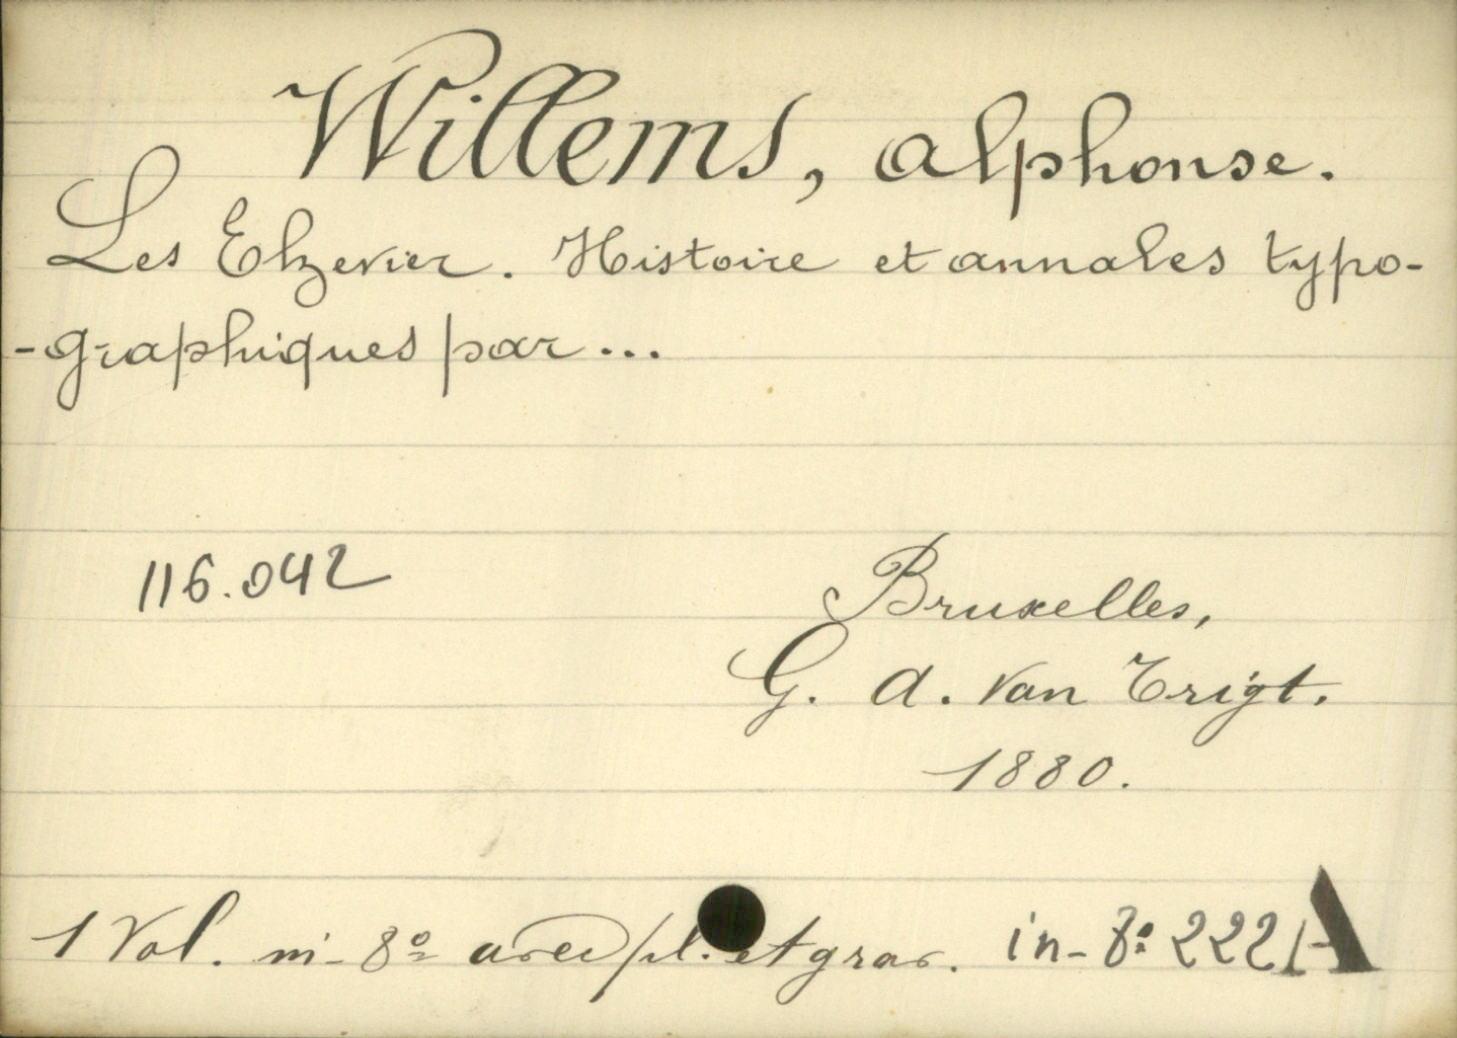 Willems, Alphonse.
Les Elzevier. Histoire et annales typo-
-graphiques par ...
116.042
Bruxelles,
G. A. Van Trigt.
1880.
1 Vol. in-8º avec pl. et grav. in-8º 222 A